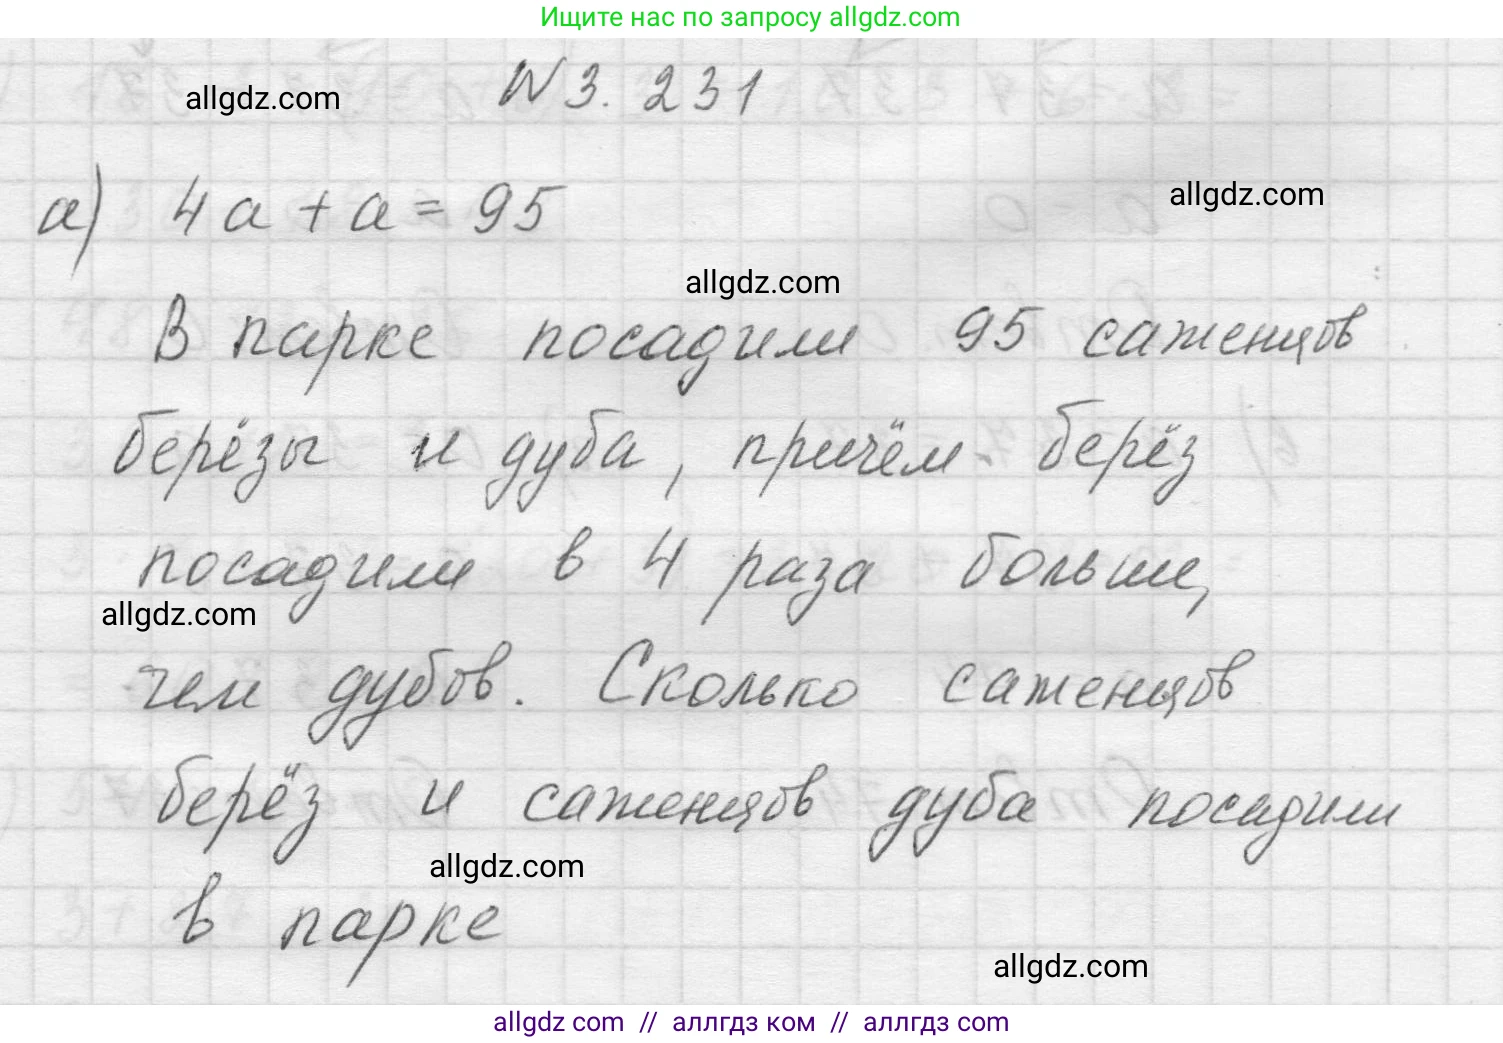 Ищите нас по запросу allgdz.com
allgdz.com
№ 3. 231
а) 4а + а = 95
allgdz.com
allgdz.com
В парке посадили 95 саженцов
берёзы и дуба, причём берёз
посадили в 4 раза больше,
allgdz.com
чем дубов. Сколько саженцов
берёз и саженцов дуба посадили
allgdz.com
в парке
allgdz.com
allgdz com // аллгдз ком // аллгдз com